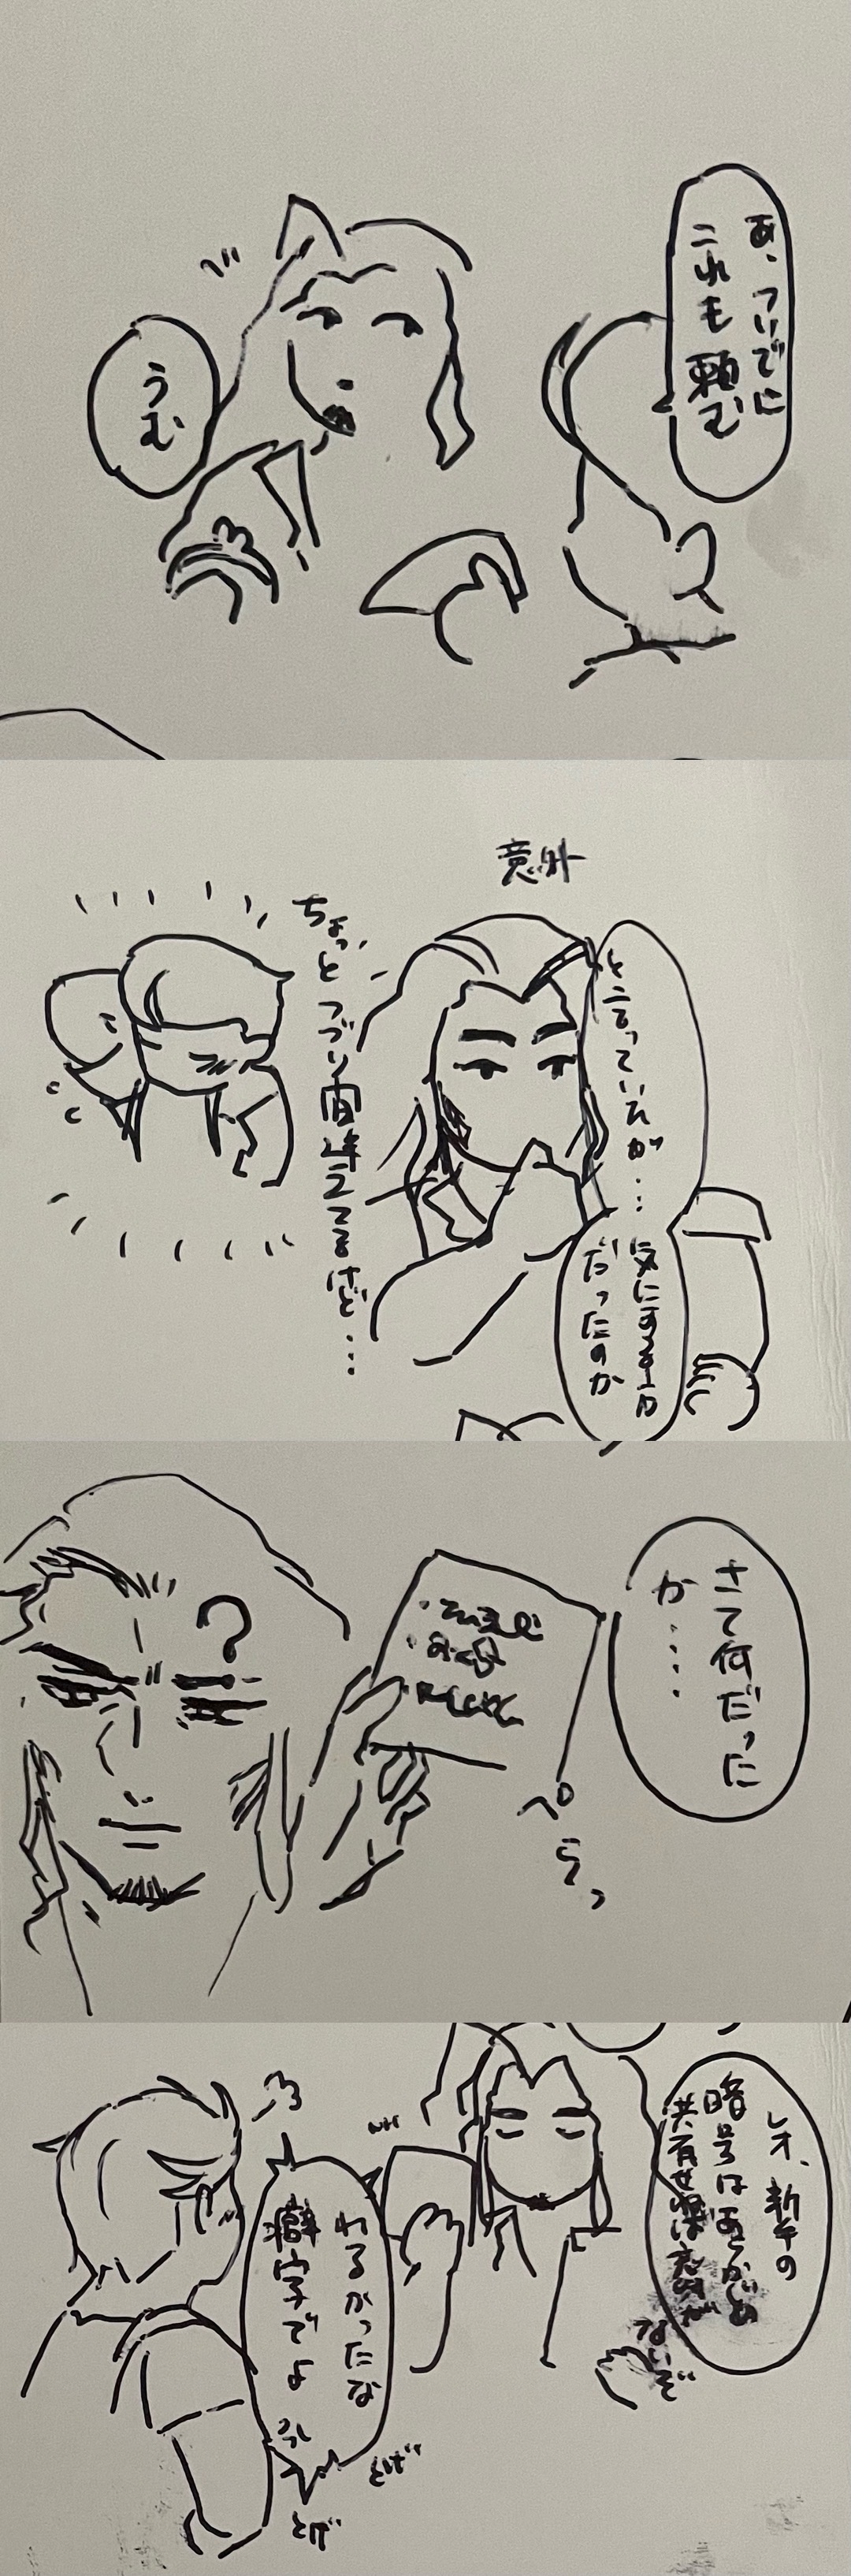 あ、ついでに
これも頼む
うむ
意外
と言っていたが…
気にする学
だったのか
ちょっとつづり間違えてるけど…
さて何だった
か…
?
ペらっ
レオ、新手の
暗号はあらかじめ
共有せねば意味が
ないぞ
わるかったな
癖字でよ
とげ
とげ